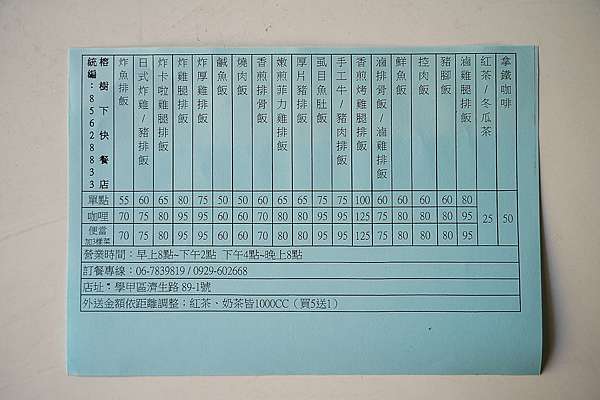 榕樹下快餐店
統編：85628833
炸魚排飯
日式炸雞/豬排飯
炸卡啦雞腿排飯
炸雞腿排飯
炸厚雞排飯
鹹魚飯
燒肉飯
香煎排骨飯
嫩煎菲力雞排飯
厚片豬排飯
虱目魚肚飯
手工牛/豬肉排飯
香煎烤雞腿排飯
滷排骨飯/滷雞排飯
鮮魚飯
控肉飯
豬腳飯
滷雞腿排飯
紅茶/冬瓜茶
拿鐵咖啡
單點 55 60 65 80 75 50 50 60 65 65 75 75 100 60 60 60 60 80
咖哩 70 75 80 95 95 60 60 70 80 80 95 95 125 75 80 80 80 95 25 50
便當加3樣菜 70 75 80 95 95 60 60 70 80 80 95 95 125 75 80 80 80 95
營業時間：早上8點~下午2點 下午4點~晚上8點
訂餐專線：06-7839819 / 0929-602668
店址：學甲區濟生路 89-1號
外送金額依距離調整；紅茶、奶茶皆1000CC（買5送1）